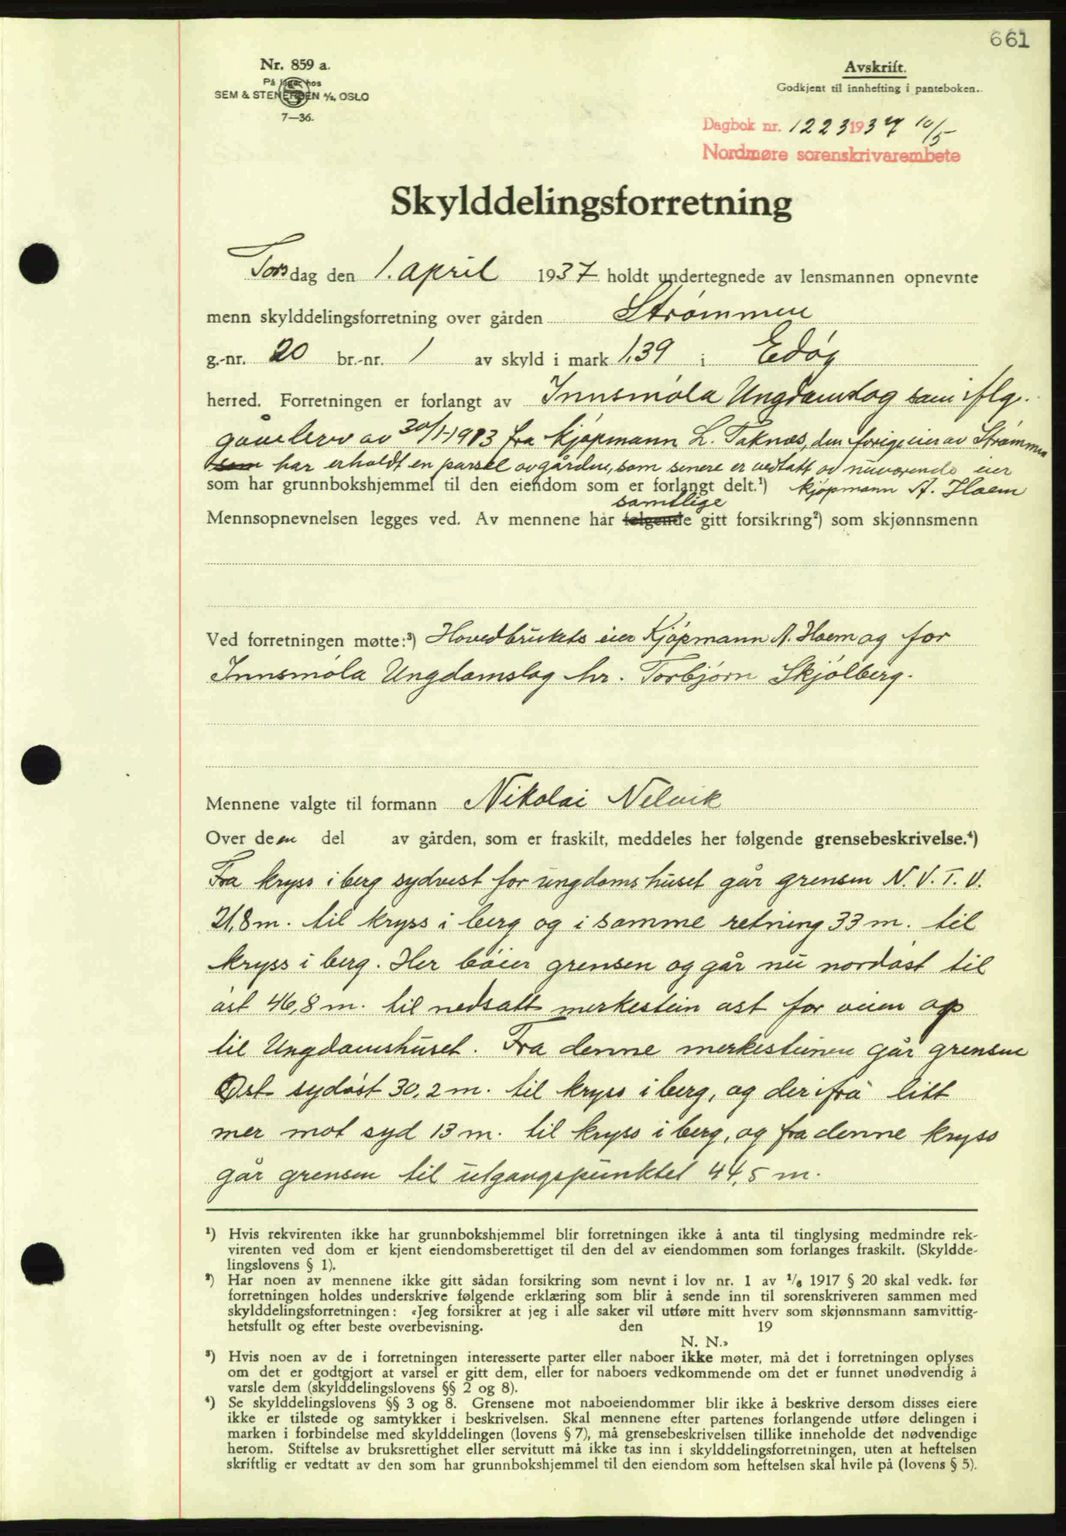 661
Nr. 859 a.
På lager hos
SEM & STENERSEN A/S, OSLO
7—36.
Avskrift.
Godkjent til innhefting i panteboken.
Dagbok nr. 1223 1937 10/5
Nordmøre sorenskrivarembete
Skylddelingsforretning
Torsdag den 1. april 1937 holdt undertegnede av lensmannen opnevnte
menn skylddelingsforretning over gården Strømmen
g.-nr. 20 br.-nr. 1 av skyld i mark 1,39 i Edøy
herred. Forretningen er forlangt av Innsmøla Ungdamslag som iflg.
gåvebrev av 30/1-1913 fra kjøpmann L. Taknæs, den forige eier av Strømmen
som har erholdt en parsel av gården, som senere er vedtatt av nuværende eier
som har grunnbokshjemmel til den eiendom som er forlangt delt.¹) kjøpmann A. Hoem
samtlige
Mennsopnevnelsen legges ved. Av mennene har følgende gitt forsikring²) som skjønnsmenn
Ved forretningen møtte:³) Hovedbrukets eier Kjøpmann A. Hoem og for
Innsmøla Ungdomslag hr. Torbjørn Skjølberg.
Mennene valgte til formann Nikolai Nelvik
Over den del av gården, som er fraskilt, meddeles her følgende grensebeskrivelse.⁴)
Fra kryss i berg sydvest for ungdomshuset går grensen N. V. T. V.
21,8 m. til kryss i berg og i samme retning 33 m. til
kryss i berg. Her bøier grensen og går nu nordøst til
øst 46,8 m. til nedsatt merkestein øst for veien op
til Ungdomshuset. Fra denne merkesteinen går grensen
Øst sydøst 30,2 m. til kryss i berg, og derifrå litt
mer mot syd 13 m. til kryss i berg, og fra denne kryss
går grensen til utgangspunktet 44,5 m.
¹) Hvis rekvirenten ikke har grunnbokshjemmel blir forretningen ikke å anta til tinglysing medmindre rek-
virenten ved dom er kjent eiendomsberettiget til den del av eiendommen som forlanges fraskilt. (Skyldde-
lingslovens § 1).
²) Har noen av mennene ikke gitt sådan forsikring som nevnt i lov nr. 1 av 1/6 1917 § 20 skal vedk. før
forretningen holdes underskrive følgende erklæring som blir å sende inn til sorenskriveren sammen med
skylddelingsforretningen: «Jeg forsikrer at jeg i alle saker vil utføre mitt hverv som skjønnsmann samvittig-
hetsfullt og efter beste overbevisning. den 19
N. N.»
³) Hvis noen av de i forretningen interesserte parter eller naboer ikke møter, må det i forretningen oplyses
om det er godtgjort at varsel er gitt dem, eller for naboers vedkommende om det er funnet unødvendig å
varsle dem (skylddelingslovens §§ 2 og 8).
⁴) Se skylddelingslovens §§ 3 og 8. Grensene mot naboeiendommer blir ikke å beskrive dersom disses eiere
ikke er tilstede og samtykker i beskrivelsen. Skal mennene efter partenes forlangende utføre delingen i
marken i forbindelse med skylddelingen (lovens § 7), må grensebeskrivelsen tillike inneholde det nødvendige
herom. Stiftelse av bruksrettighet eller servitutt må ikke tas inn i skylddelingsforretningen, uten at heftelsen
skriftlig er vedtatt av den som har grunnbokshjemmel til den eiendom som heftelsen skal hvile på (lovens § 5).